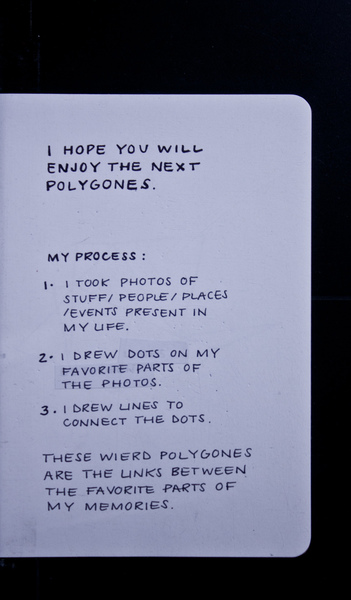 I HOPE YOU WILL
ENJOY THE NEXT
POLYGONES.
MY PROCESS :
1. I TOOK PHOTOS OF
STUFF/ PEOPLE/ PLACES
/EVENTS PRESENT IN
MY LIFE.
2. I DREW DOTS ON MY
FAVORITE PARTS OF
THE PHOTOS.
3. I DREW LINES TO
CONNECT THE DOTS.
THESE WIERD POLYGONES
ARE THE LINKS BETWEEN
THE FAVORITE PARTS OF
MY MEMORIES.